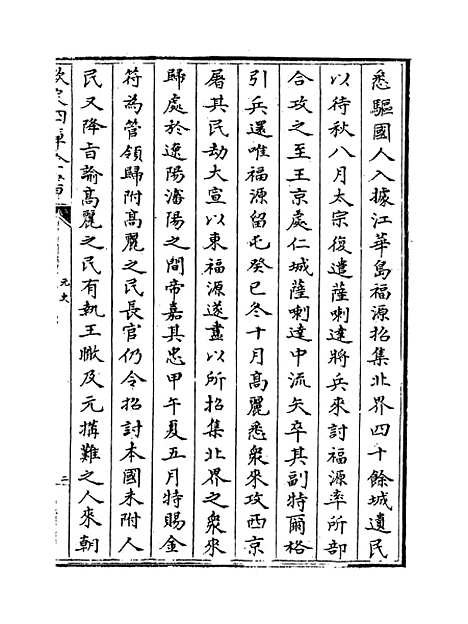 悉驅國人入據江華島福源招集北界四十餘城遺民
以待秋八月太宗復遣薩喇達將兵來討福源率所部
合攻之至王京處仁城薩喇達中流矢卒其副特爾格
引兵還唯福源留屯癸巳冬十月高麗悉衆來攻西京
屠其民劫大宣以東福源遂盡以所招集北界之衆來
歸處於遼陽瀋陽之間帝嘉其忠甲午夏五月特賜金
符為管領歸附高麗之民長官仍令招討本國未附人
民又降旨諭高麗之民有執王瞮及元搆難之人來朝
欽定四庫全書
元史